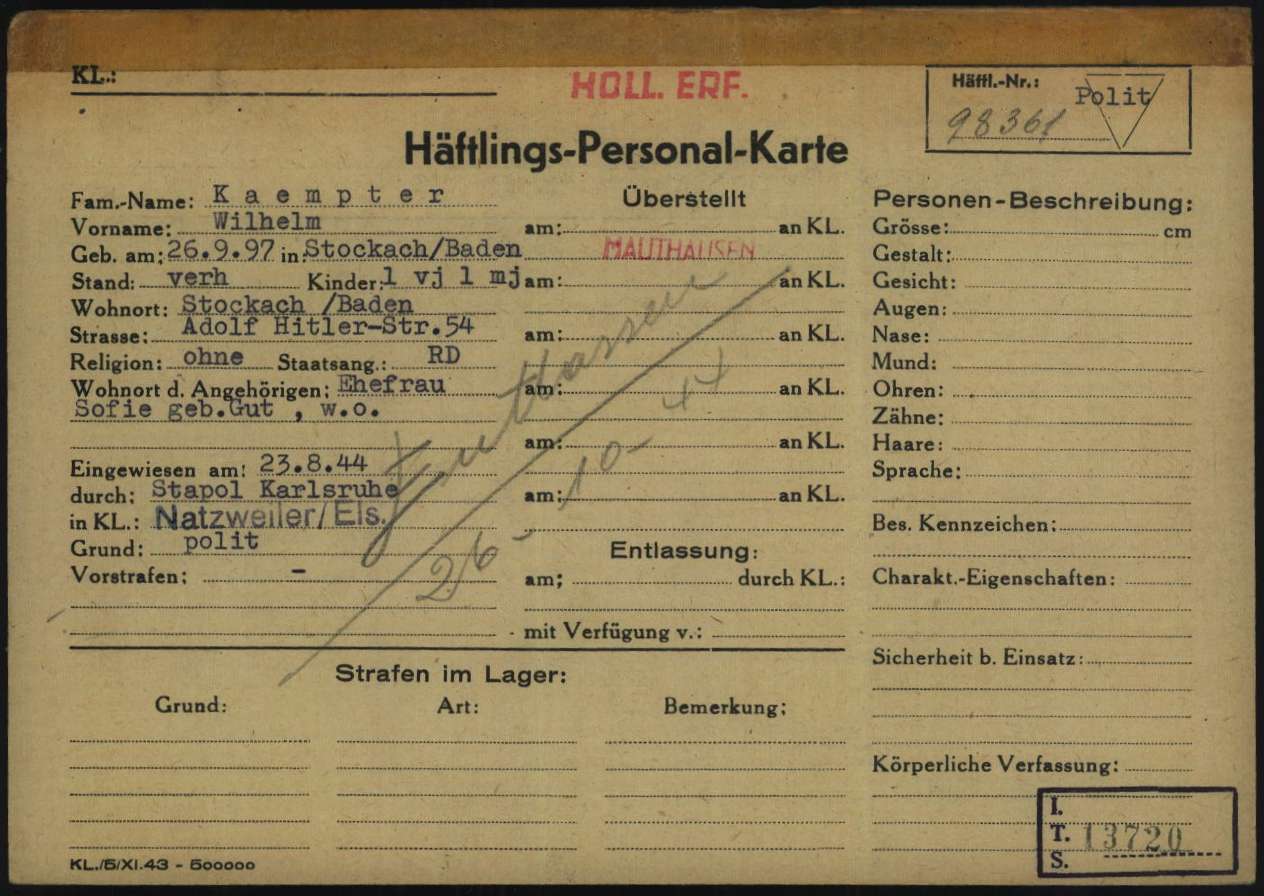 KL.:
HOLL. ERF.
Häftl.-Nr.:
Polit
98361
Häftlings-Personal-Karte
Fam.-Name: Kaempter
Vorname: Wilhelm
Geb. am: 26.9.97 in Stockach/Baden
Stand: verh Kinder: 1 vj 1 mj
Wohnort: Stockach /Baden
Strasse: Adolf Hitler-Str.54
Religion: ohne Staatsang.: RD
Wohnort d. Angehörigen: Ehefrau
Sofie geb.Gut , w.o.
Eingewiesen am: 23.8.44
durch: Stapol Karlsruhe
in KL.: Natzweiler/Els.
Grund: polit
Vorstrafen: -
Überstellt
am: an KL.
MAUTHAUSEN
am: an KL.
am: an KL.
am: an KL.
am: an KL.
am: an KL.
Entlassen
26-10-44
Entlassung:
am: durch KL.:
mit Verfügung v.:
Personen-Beschreibung:
Grösse: cm
Gestalt:
Gesicht:
Augen:
Nase:
Mund:
Ohren:
Zähne:
Haare:
Sprache:
Bes. Kennzeichen:
Charakt.-Eigenschaften:
Sicherheit b. Einsatz:
Körperliche Verfassung:
Strafen im Lager:
Grund: Art: Bemerkung:
KL./5/XI.43 - 500000
I.
T. 13720
S.